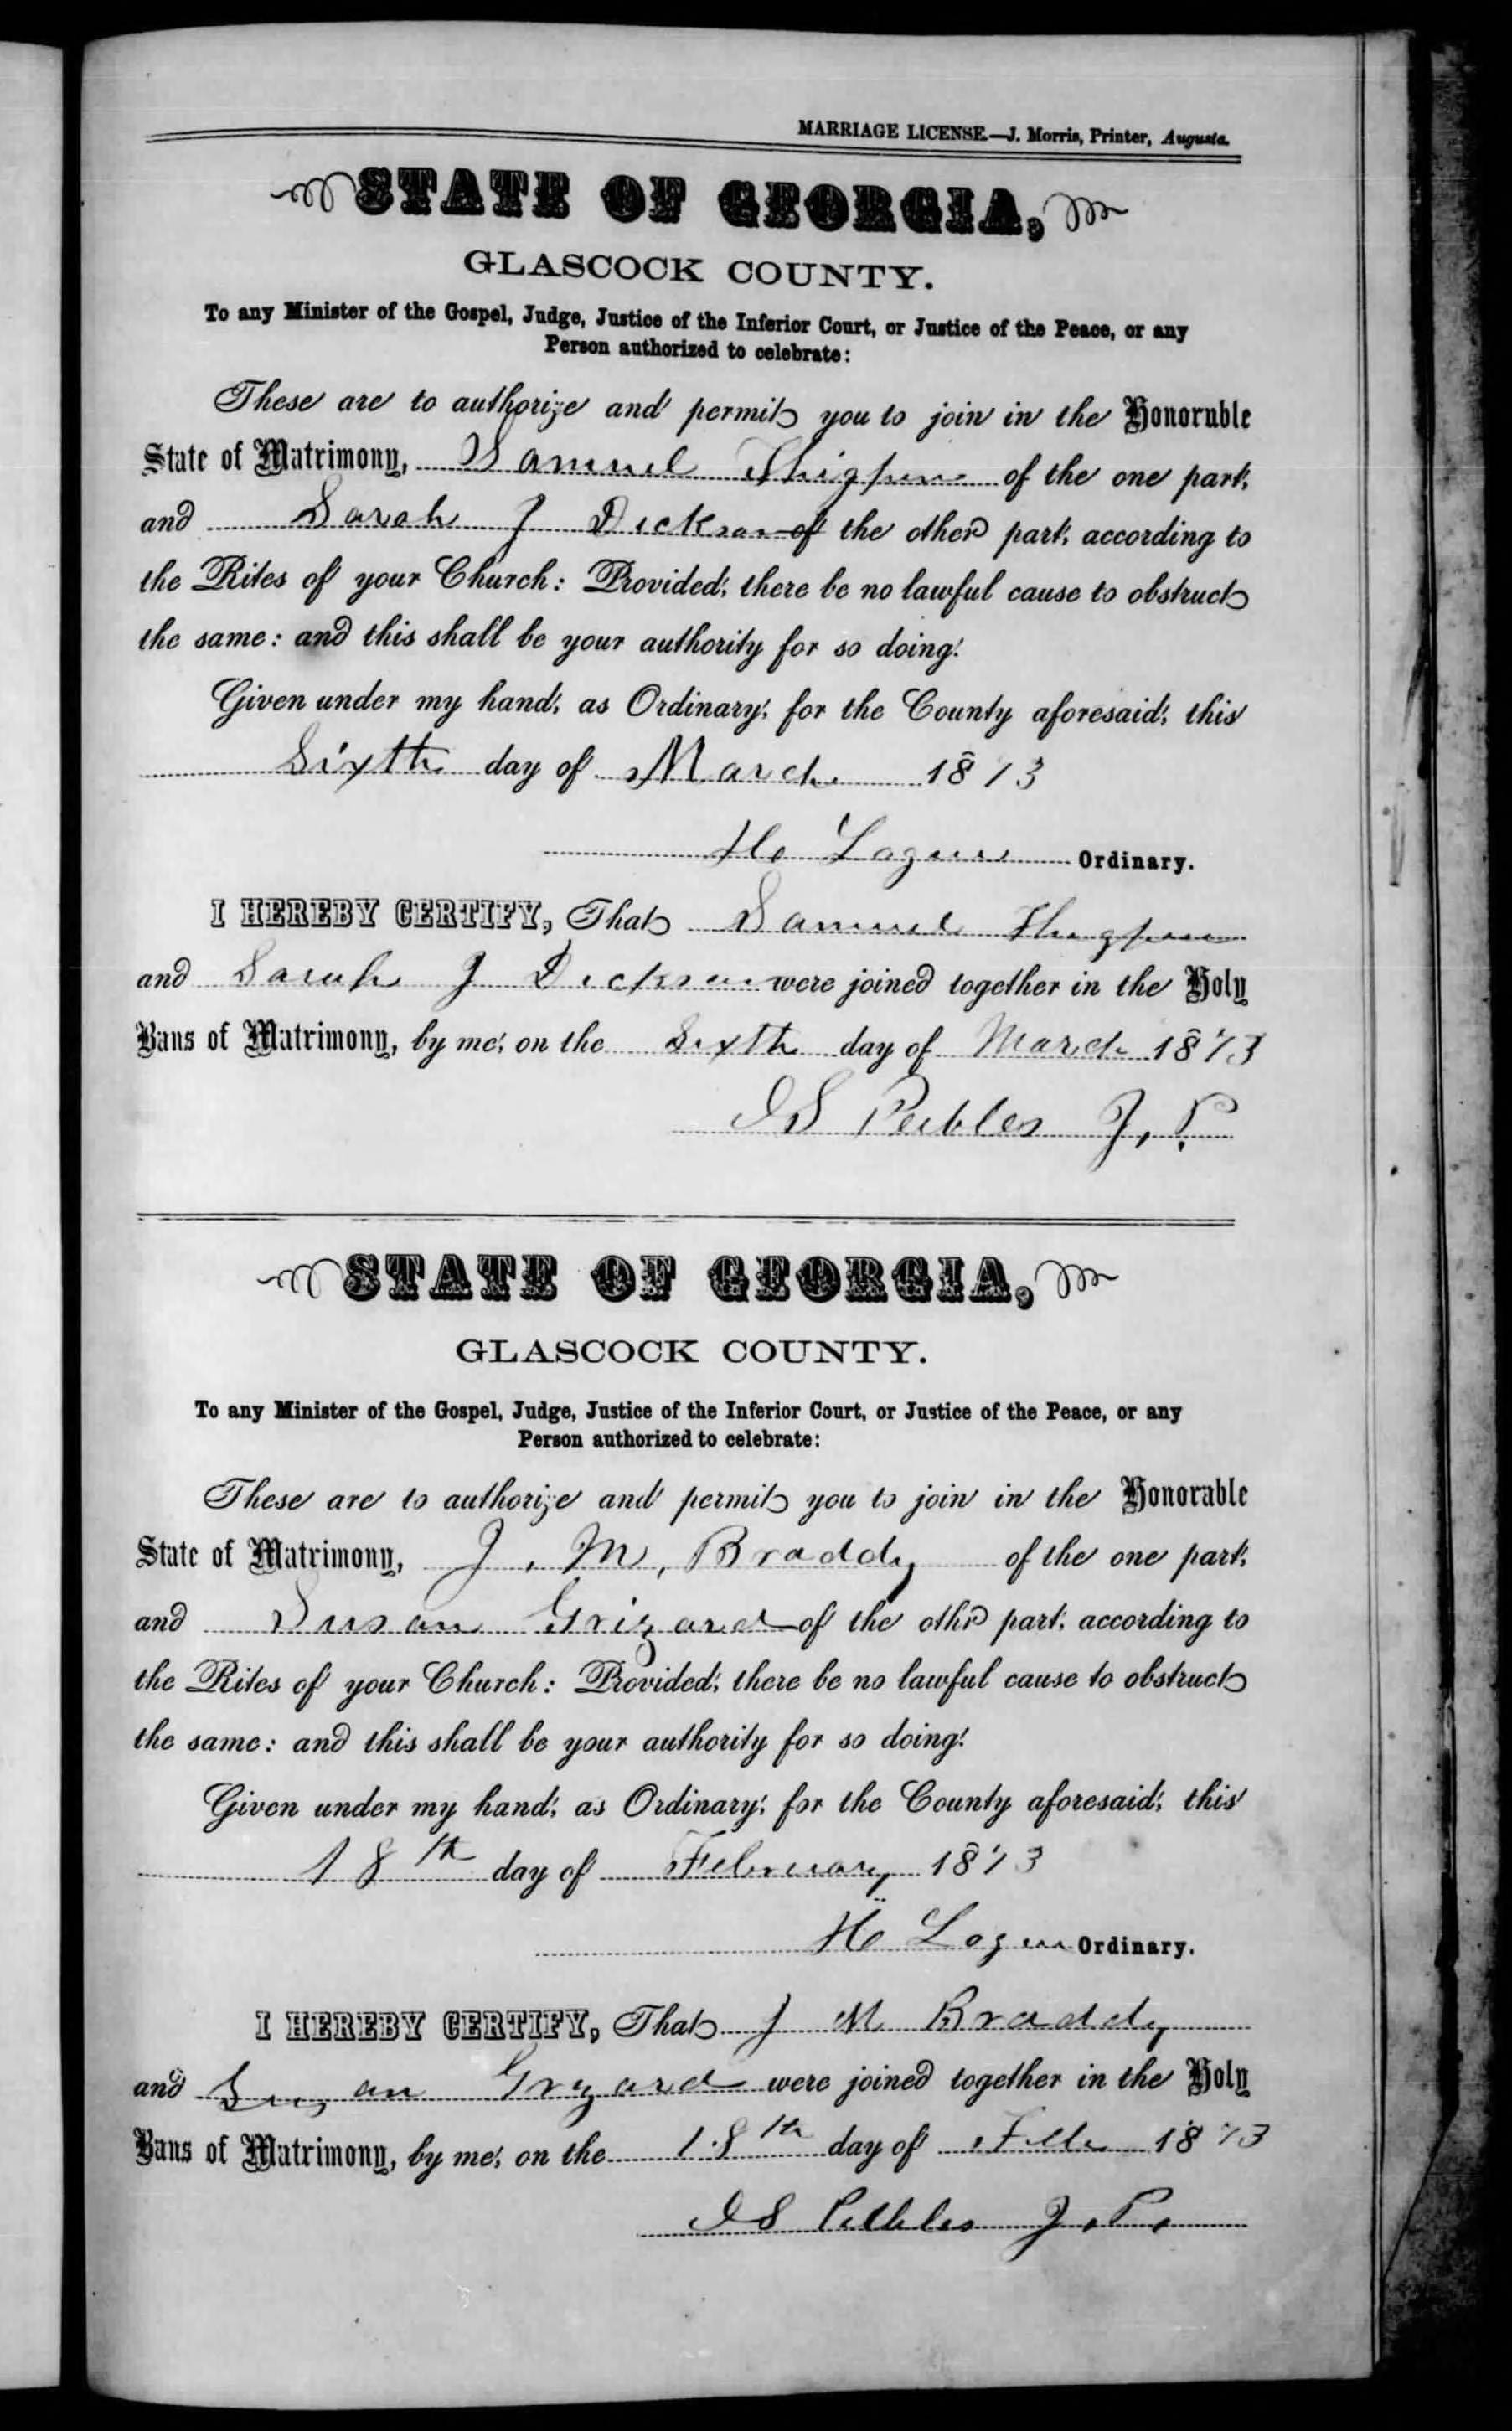 MARRIAGE LICENSE.—J. Morris, Printer, Augusta.
STATE OF GEORGIA,
GLASCOCK COUNTY.
To any Minister of the Gospel, Judge, Justice of the Inferior Court, or Justice of the Peace, or any
Person authorized to celebrate:
These are to authorize and permit you to join in the Honorable
State of Matrimony, Samuel Thigpen of the one part,
and Sarah J Dickson of the other part, according to
the Rites of your Church: Provided, there be no lawful cause to obstruct
the same: and this shall be your authority for so doing.
Given under my hand, as Ordinary, for the County aforesaid, this
Sixth day of March 1873
Logue Ordinary.
I HEREBY CERTIFY, That Samuel Thigpen
and Sarah J Dickson were joined together in the Holy
Bans of Matrimony, by me, on the Sixth day of March 1873
Peebles J. P.
STATE OF GEORGIA,
GLASCOCK COUNTY.
To any Minister of the Gospel, Judge, Justice of the Inferior Court, or Justice of the Peace, or any
Person authorized to celebrate:
These are to authorize and permit you to join in the Honorable
State of Matrimony, J. M. Braddy of the one part,
and Susan Grizard of the othr part, according to
the Rites of your Church: Provided, there be no lawful cause to obstruct
the same: and this shall be your authority for so doing.
Given under my hand, as Ordinary, for the County aforesaid, this
18th day of February 1873
Logue Ordinary.
I HEREBY CERTIFY, That J M Braddy
and Susan Grizard were joined together in the Holy
Bans of Matrimony, by me, on the 18th day of Feb 1873
Peebles J. P.